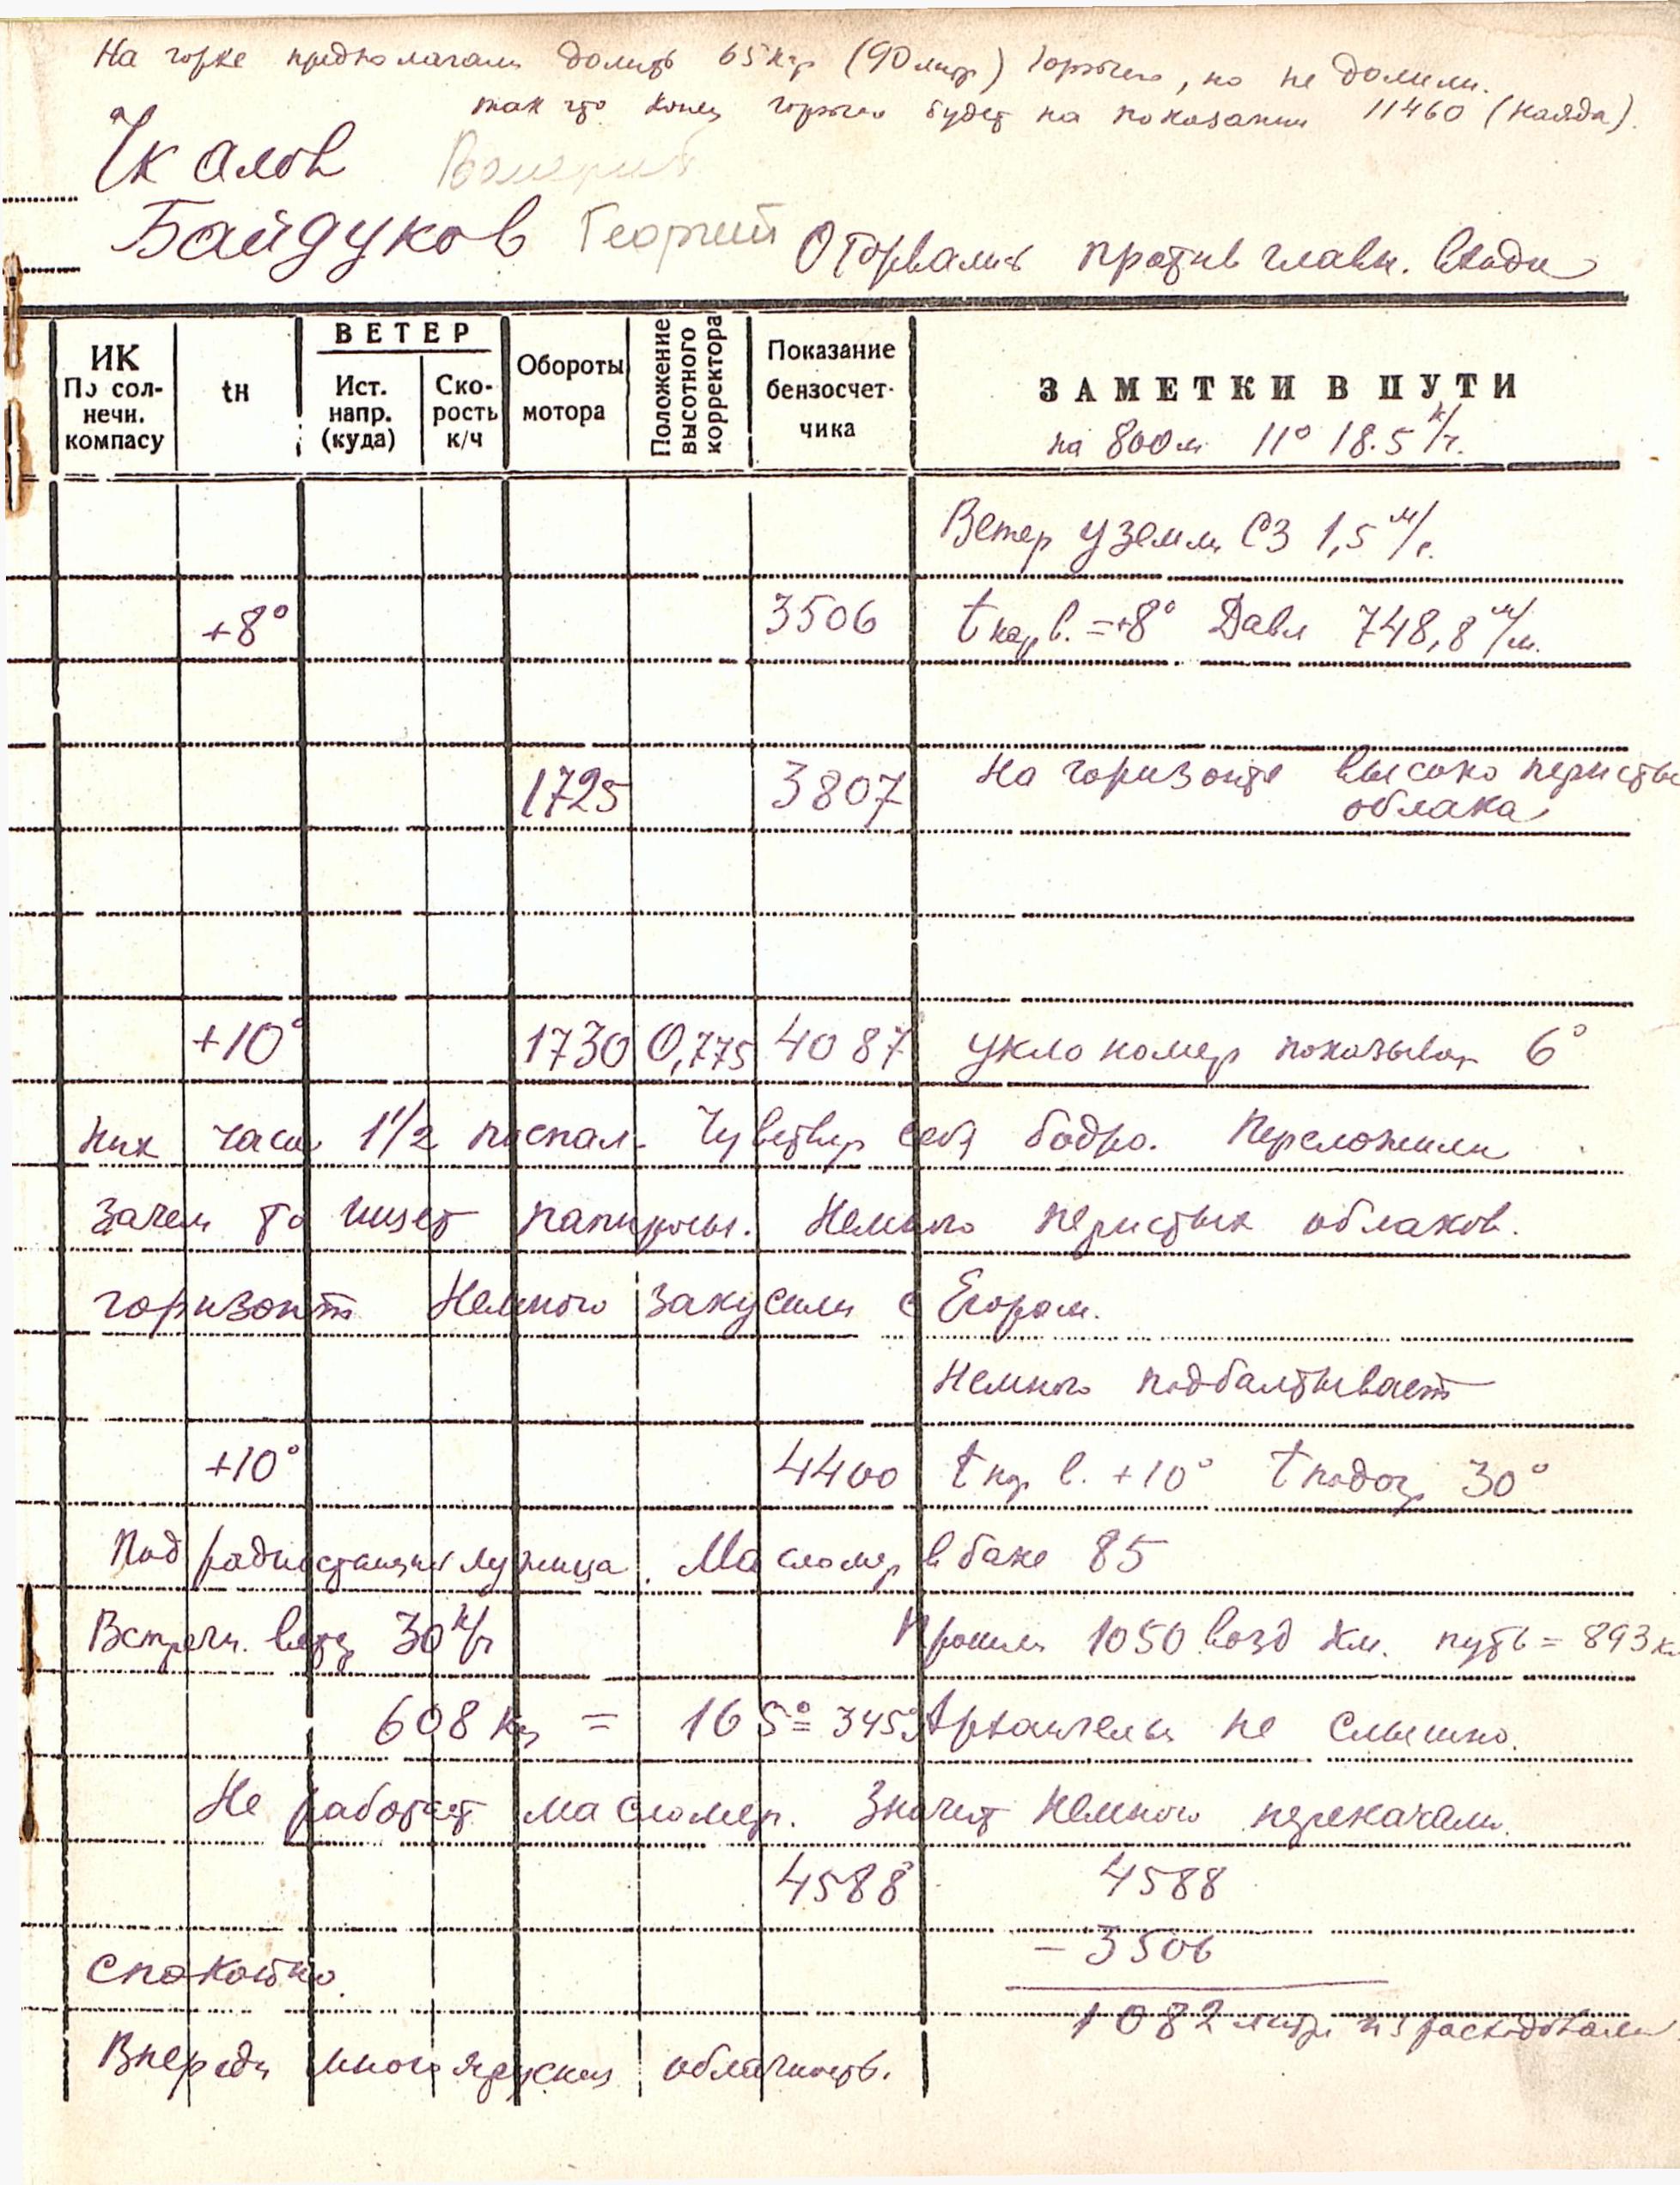 На горке предполагали долить 65 кгр (90 литр) горючего, но не долили.
так что конец горючего будет на показании 11460
Чкалов Валерий
Байдуков Георгий Оторвались против главн. входа
ИК По солнечн. компасу
tн
ВЕТЕР
Ист. напр. (куда)
Скорость к/ч
Обороты мотора
Положение высотного корректора
Показание бензосчет-чика
ЗАМЕТКИ В ПУТИ
на 800м 11° 18.5 к/г.
Ветер у земли СЗ 1,5 м/с.
+8° 3506 t нар в. = +8° Давл 748,8 м/м.
1725 3807 На горизонте высоко перистые
облака
+10° 1730 0,775 4087 уклономер показывает 6°
них часа 1 1/2 поспал. Чувствую себя бодро. Переложили
зачем то папиросы. Немного перистых облаков.
горизонт Немного закусили с Егором.
Немного подбалтывает
+10° 4400 t нар в. +10° t подог 30°
Под радиостанцией лужица. Масломер в баке 85
Встречн. ветер 30 к/ч Прошли 1050 возд км. путь = 893 км
608 кг = 165° = 345° Архангельск не слышно.
Не работает масломер. Значит немного перекачали.
4588 4588
- 3506
спокойно.
1082 литр израсходовали
Впереди многоярусная облачность.